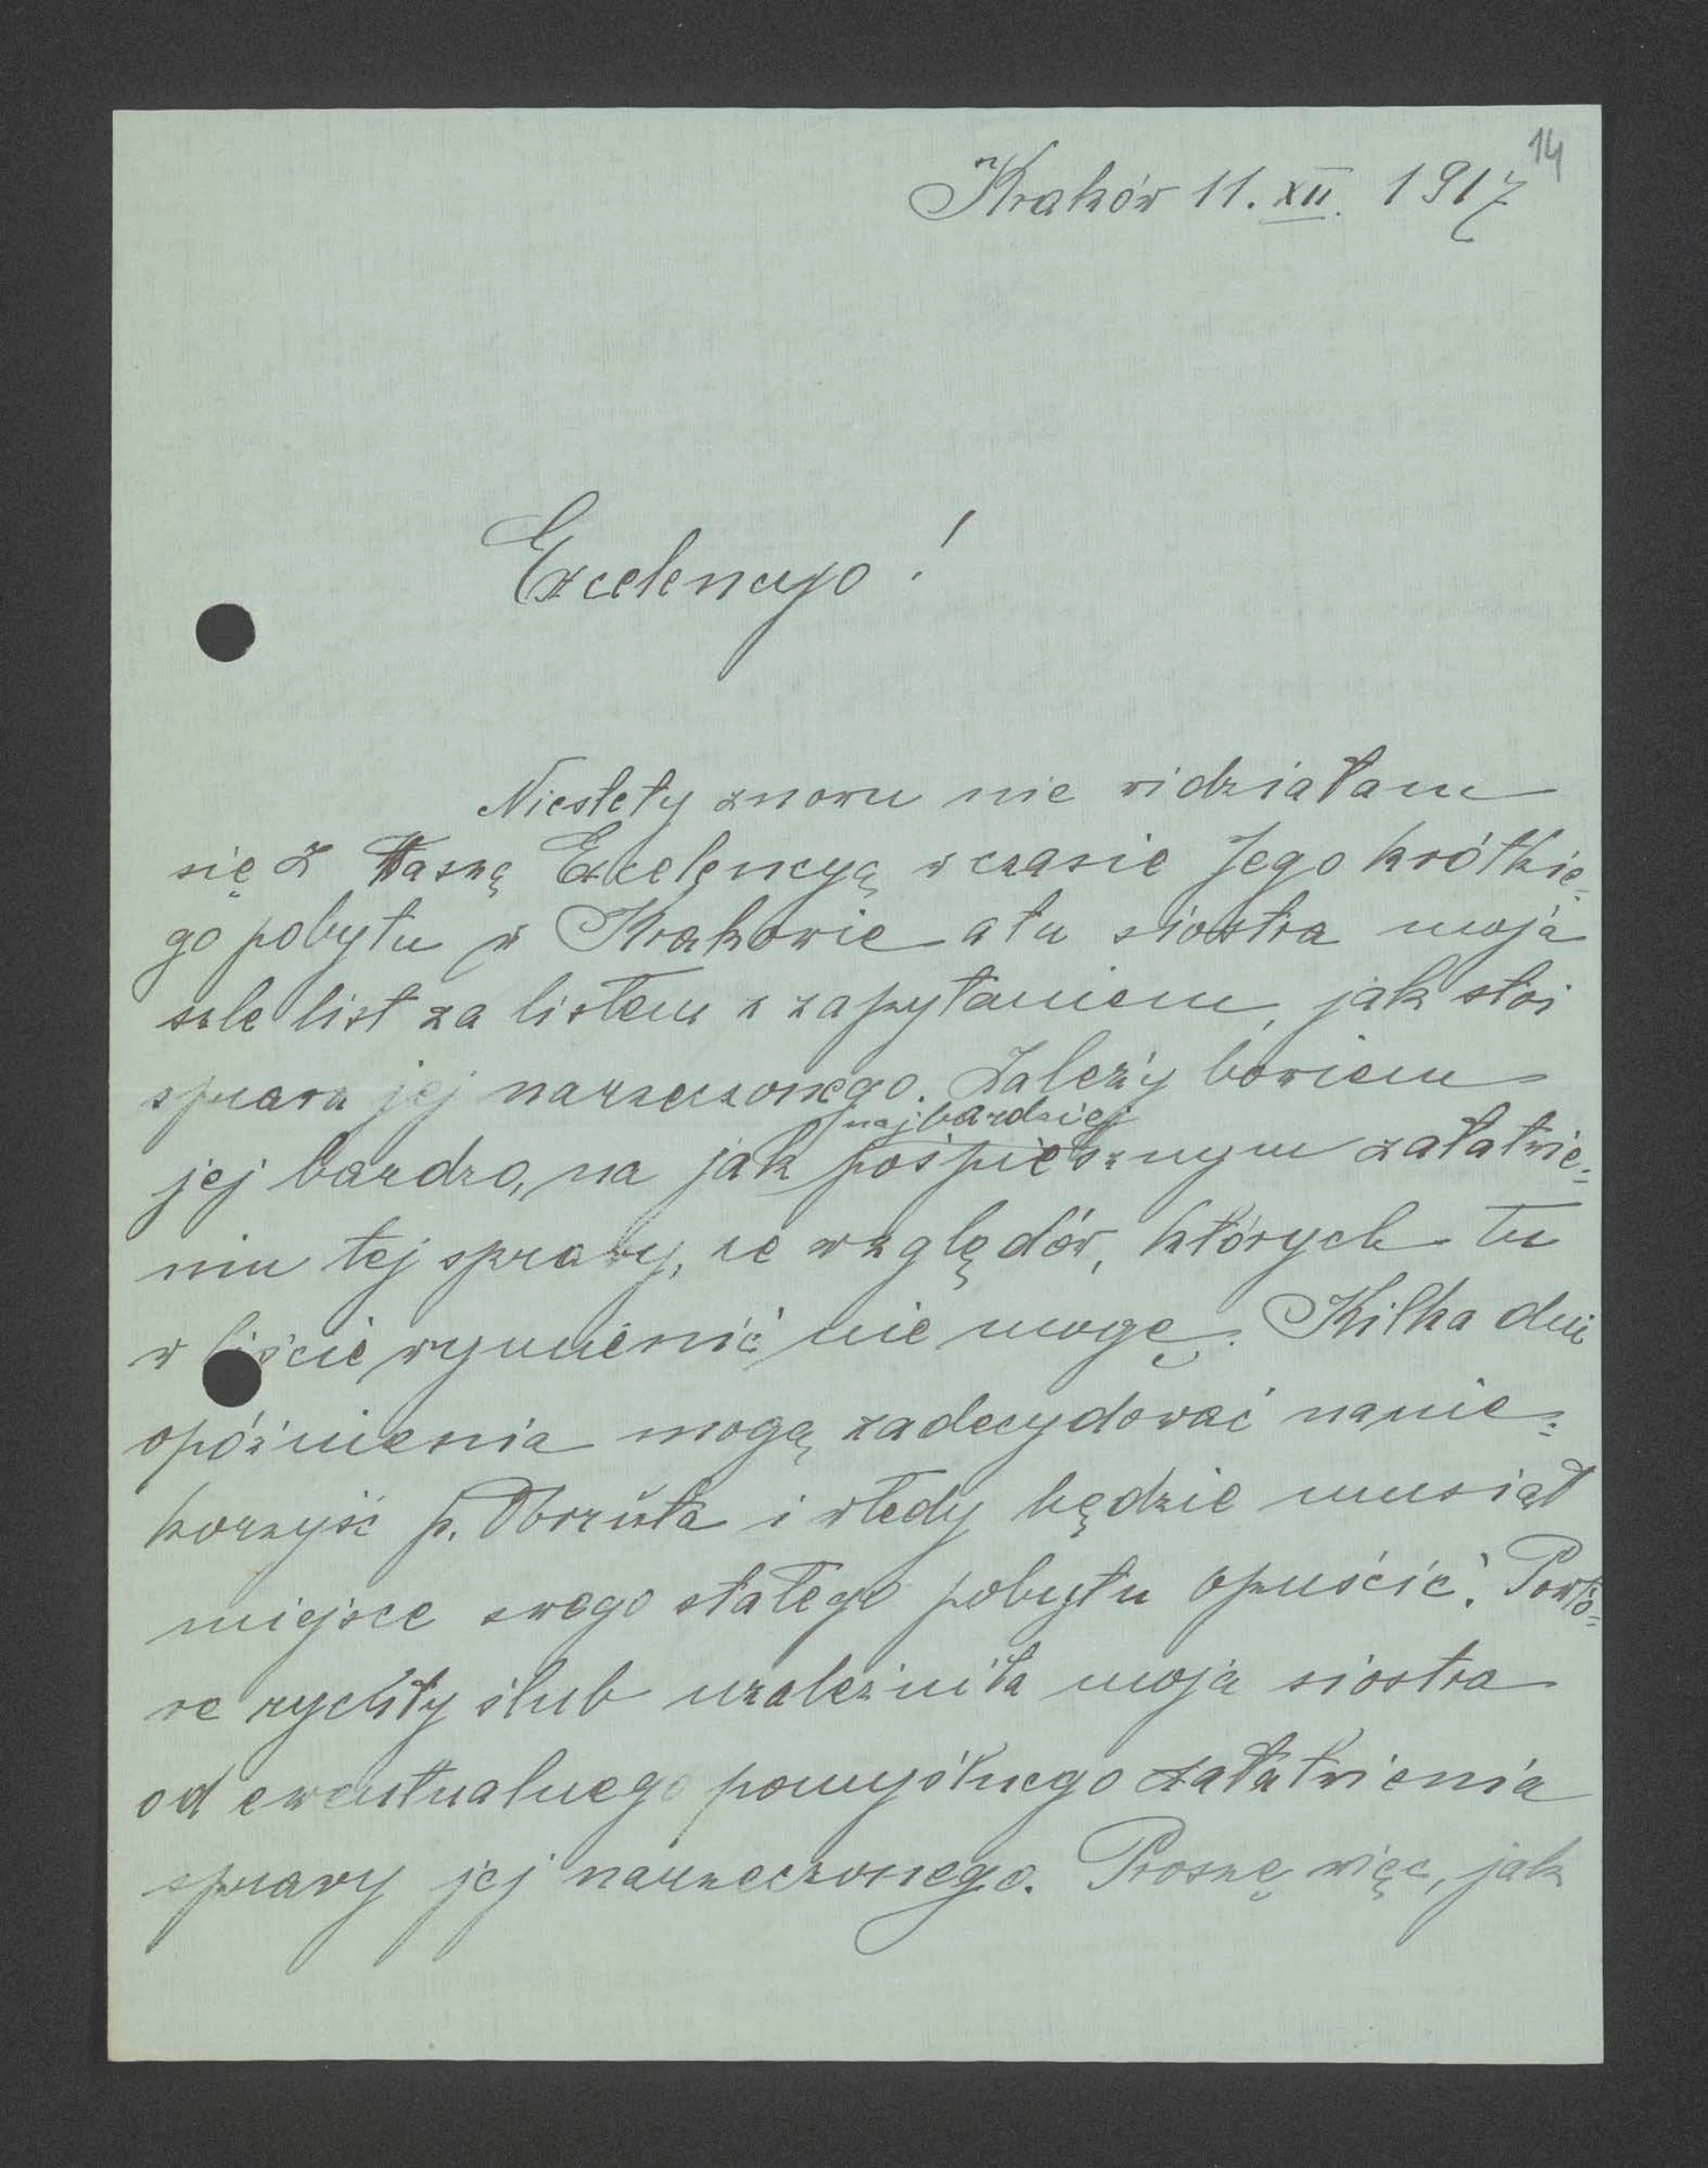 14
Kraków 11. XII. 1917
Excelencyo!
Niestety znowu nie widziałam
się z Waszą Excelencyą w czasie Jego krótkie=
go pobytu w Krakowie a tu siostra moja
szle list za listem z zapytaniem, jak stoi
sprawa jej narzeczonego. Zależy bowiem
najbardziej
jej bardzo, na jak pośpiesznym załatwie=
niu tej sprawy, ze względów, których tu
w liście wymienić nie mogę. Kilka dni
opóźnienia mogą zadecydować na nie=
korzyść p. i wtedy będzie musiał
miejsce swego stałego pobytu opuścić. Powtó=
re rychły ślub uzależniła moja siostra
od ewentualnego pomyślnego załatwienia
sprawy jej narzeczonego. Proszę więc, jak